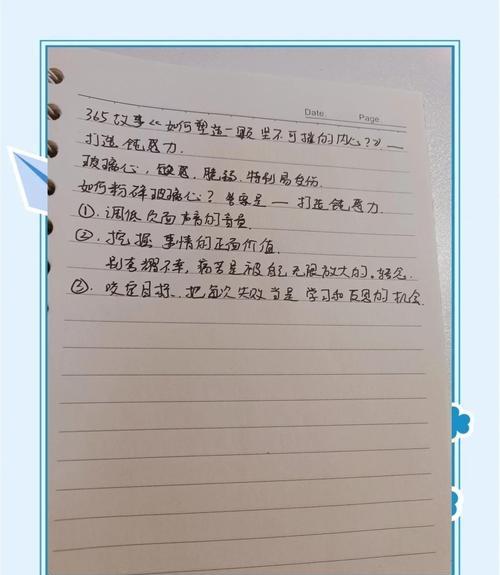 Date. Page
365故事《如何塑造一颗坚不可摧的内心?》——
打造钝感力.
玻璃心,敏感,脆弱.特别易受伤.
如何粉碎玻璃心?答案是 — 打造钝感力.
①.调低负面声音的音量.
②.挖掘事情的正面价值.
别老想不幸,痛苦是被自己无限放大的.转念.
③.咬定目标.把每次失败当是学习和反思的机会.